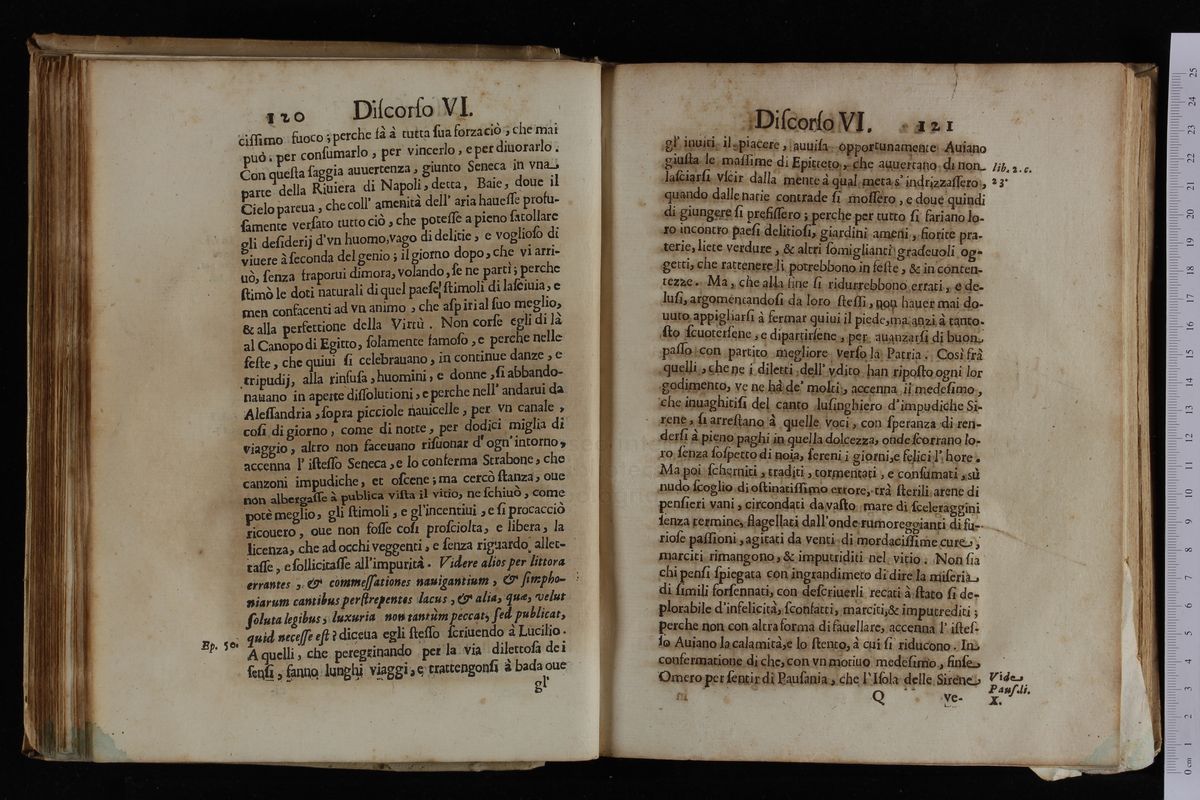 120 Diſcorſo VI.
ciſſimo fuoco; perche ſà à tutta ſua forza ciò, che mai
può, per conſumarlo, per vincerlo, e per diuorarlo.
Con queſta ſaggia auuertenza, giunto Seneca in vna
parte della Riuiera di Napoli, detta, Baie, doue il
Cielo pareua, che coll' amenità dell' aria haueſſe profu-
ſamente verſato tutto ciò, che poteſſe a pieno ſatollare
gli deſiderij d'vn huomo, vago di delitie, e voglioſo di
viuere à ſeconda del genio; il giorno dopo, che vi arri-
uò, ſenza fraporui dimora, volando, ſe ne partì; perche
ſtimò le doti naturali di quel paeſe, ſtimoli di laſciuia, e
men confacenti ad vn animo, che aſpiri al ſuo meglio,
& alla perfettione della Virtù. Non corſe egli di là
al Canopo di Egitto, ſolamente famoſo, e perche nelle
feſte, che quiui ſi celebrauano, in continue danze, e
tripudij, alla rinfuſa, huomini, e donne, ſi abbando-
nauano in aperte diſſolutioni, e perche nell' andarui da
Aleſſandria, ſopra picciole nauicelle, per vn canale,
coſi di giorno, come di notte, per dodici miglia di
viaggio, altro non faceuano riſuonar d' ogn'intorno,
accenna l' iſteſſo Seneca, e lo conferma Strabone, che
canzoni impudiche, et oſcene; ma cercò ſtanza, oue
non albergaſſe à publica viſta il vitio, ne ſchiuò, come
potè meglio, gli ſtimoli, e gl'incentiui, e ſi procacciò
ricouero, oue non foſſe coſi proſciolta, e libera, la
licenza, che ad occhi veggenti, e ſenza riguardo allet-
taſſe, e ſollicitaſſe all'impurità. Videre alios per littora
errantes, & commeſſationes nauigantium, & ſimpho-
niarum cantibus perſtrepentes lacus, & alia, quæ, velut
ſoluta legibus, luxuria non tantùm peccat, ſed publicat,
quid neceſſe eſt? diceua egli ſteſſo ſcriuendo à Lucilio.
Ep. 50.
A quelli, che peregrinando per la via dilettoſa dei
ſenſi, fanno lunghi viaggi, e trattengonſi à bada oue
gl'
Diſcorſo VI. 121
gl' inuiti il piacere, auuiſa opportunamente Auiano
giuſta le maſſime di Epitteto, che auuertano di non
lib. 2. c.
23
laſciarſi vſcir dalla mente à qual meta s' indrizzaſſero,
quando dalle natie contrade ſi moſſero, e doue quindi
di giungere ſi prefiſſero; perche per tutto ſi fariano lo-
ro incontro paeſi delitioſi, giardini ameni, fiorite pra-
terie, liete verdure, & altri ſomiglianti gradeuoli og-
getti, che rattenere li potrebbono in feſte, & in conten-
tezze. Ma, che alla fine ſi ridurrebbono errati, e de-
luſi, argomentandoſi da loro ſteſſi, non hauer mai do-
uuto appigliarſi à fermar quiui il piede, ma anzi à tanto-
ſto ſcuoterſene, e dipartirſene, per auanzarſi di buon
paſſo con partito megliore verſo la Patria. Così frà
quelli, che ne i diletti dell' vdito han ripoſto ogni lor
godimento, ve ne hà de' molti, accenna il medeſimo,
che inuaghitiſi del canto luſinghiero d'impudiche Si-
rene, ſi arreſtano à quelle voci, con ſperanza di ren-
derſi à pieno paghi in quella dolcezza, onde ſcorrano lo-
ro ſenza ſoſpetto di noia, ſereni i giorni, e felici l' hore.
Ma poi ſcherniti, traditi, tormentati, e conſumati, sù
nudo ſcoglio di oſtinatiſſimo errore, trà ſterili arene di
penſieri vani, circondati da vaſto mare di ſceleraggini
ſenza termine, flagellati dall'onde rumoreggianti di fu-
rioſe paſſioni, agitati da venti di mordaciſſime cure,
marciti rimangono, & imputriditi nel vitio. Non ſia
chi penſi ſpiegata con ingrandimeto di dire la miſeria
di ſimili forſennati, con deſcriuerli recati à ſtato ſi de-
plorabile d'infelicità, ſconfatti, marciti, & imputrediti;
perche non con altra forma di fauellare, accenna l' iſteſ-
ſo Auiano la calamità, e lo ſtento, à cui ſi riducono. In
confermatione di che, con vn motiuo medeſimo, finſe
Omero per ſentir di Pauſania, che l'Iſola delle Sirene
Vide
Pauſ. li.
X.
Q ve-